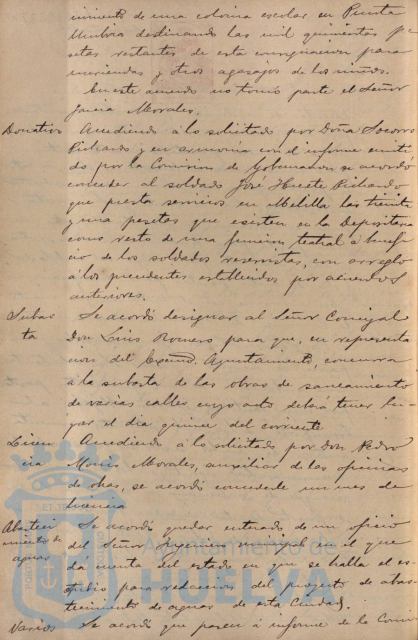 cimiento de una colonia escolar en Punta
Umbria destinando las mil quinientas pe
setas restantes de esta consignacion para
meriendas y otros agasajos de los niños.
En este acuerdo no tomó parte el Señor
Garcia Morales.
Donativo Accediendo á lo solicitado por Doña Socorro
Pichardo y en armonia con el informe emiti
do por la Comision de Gobernacion se acordó
conceder al soldado José Pichardo
que presta servicios en Melilla las treinta
y una pesetas que existen en la Depositaria
como resto de una funcion teatral á benefi
cio de los soldados reservistas, con arreglo
á los precedentes establecidos por acuerdos
anteriores.
Subas
ta
Se acordó designar al Señor Concejal
Don Luis Romero para que, en representa
cion del Excmo. Ayuntamiento, concurra
á la subasta de las obras de saneamiento
de varias calles cuyo acto deberá tener lu-
gar el dia quince del corriente
Licen
cia
Accediendo á lo solicitado por Don Pedro
Morales, auxiliar de las oficinas
de obras, se acordó concederle un mes de
licencia
Abasteci
miento de
aguas
Se acordó quedar enterado de un oficio
del Señor Ingeniero municipal en el que
dá cuenta del estado en que se halla el es-
tudio para redaccion del proyecto de abas-
tecimiento de aguas de esta Ciudad.
Varios Se acordó que pasen á informe de la Comi
Ayuntamiento de
HUELVA